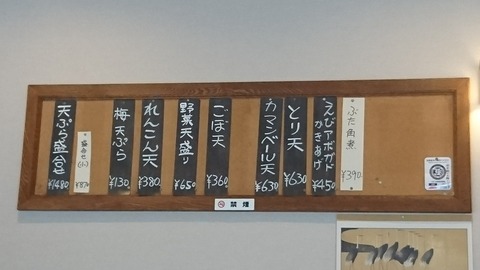 ぶた角煮 ¥390.
えびアボガド
かきあげ ¥450
とり天 ¥630
カマンベール天 ¥630
ごぼ天 ¥360
野菜天盛り ¥650
れんこん天 ¥380.
梅天ぷら ¥130.
盛合せ(小) ¥870
天ぷら盛合せ ¥1480
禁煙